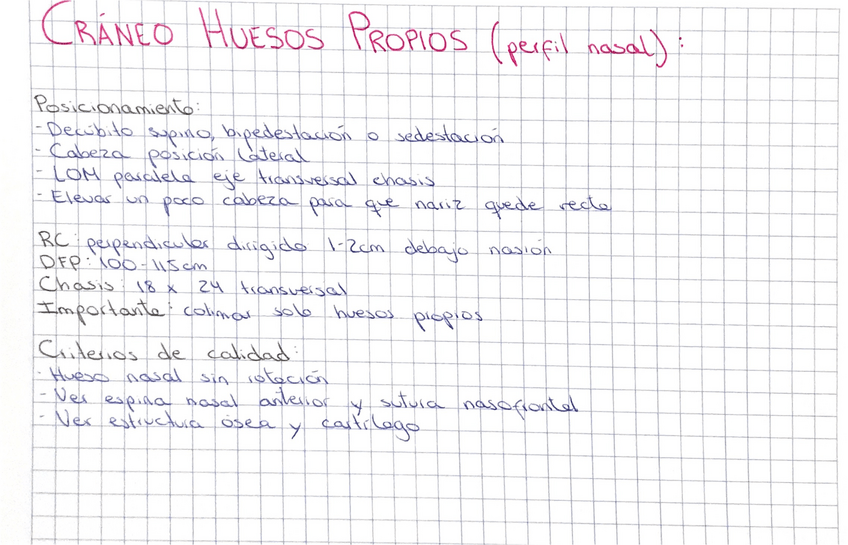 CRÁNEO HUESOS PROPIOS (perfil nasal):
Posicionamiento:
- Decúbito supino, bipedestación o sedestación
- Cabeza posición lateral
- LOM paralela eje transversal chasis
- Elevar un poco cabeza para que nariz quede recta
RC: perpendicular dirigido 1-2cm debajo nasión
DFP: 100-115cm
Chasis: 18 x 24 transversal
Importante: colimar solo huesos propios
Criterios de calidad:
- Hueso nasal sin rotación
- Ver espina nasal anterior y sutura nasofrontal
- Ver estructura ósea y cartílago